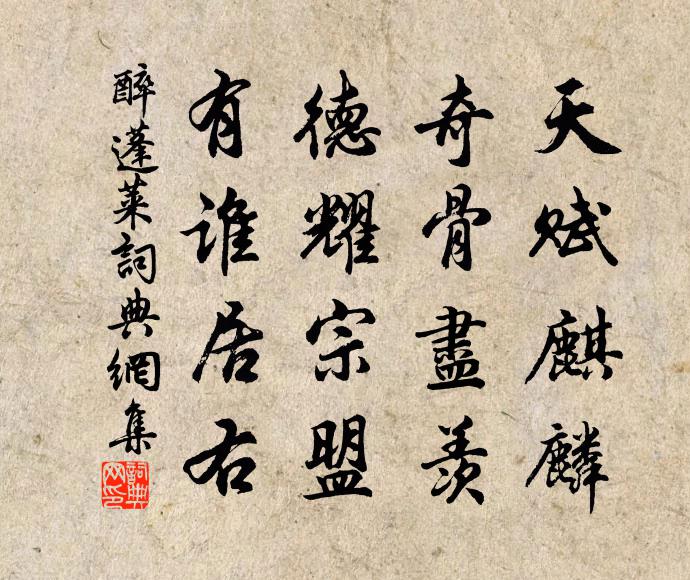 天賦麒麟
奇骨盡羨
德耀宗盟
有誰居右
醉蓬萊詞典網集
詞典網印